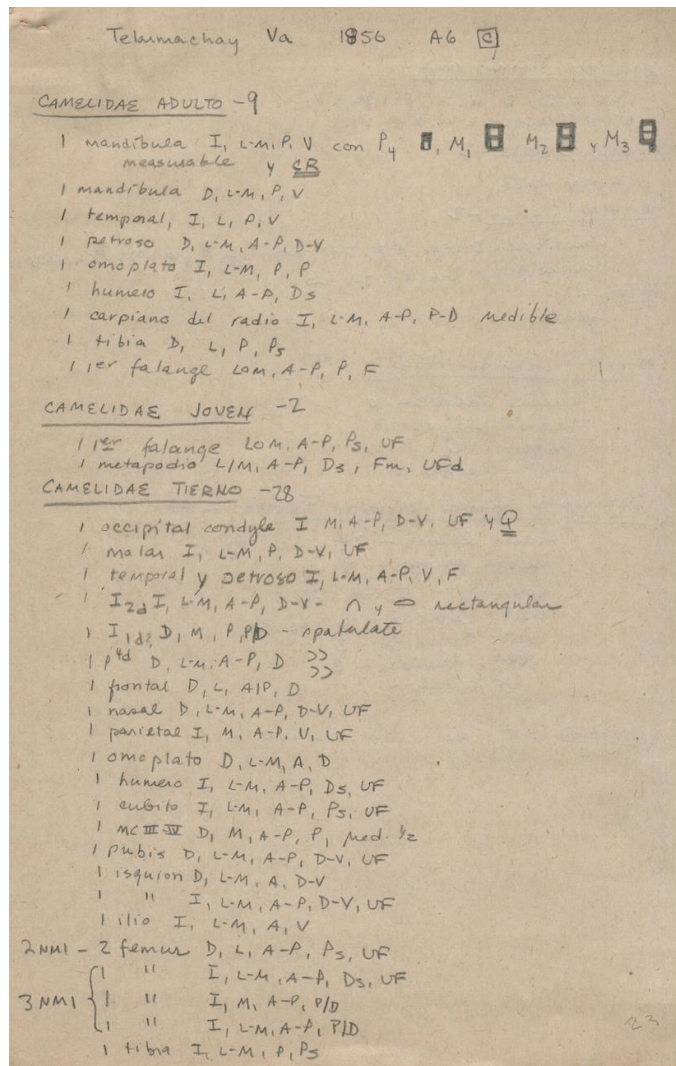 Telarmachay Va 1856 A6 C
CAMELIDAE ADULTO - 9
1 mandibula I, L-M, P, V con P4 , M1 M2 y M3
measurable y CR
1 mandibula D, L-M, P, V
1 temporal, I, L, P, V
1 petroso D, L-M, A-P, D-V
1 omoplato I, L-M, P, P
1 humero I, L, A-P, Ds
1 carpiano del radio I, L-M, A-P, P-D medible
1 tibia D, L, P, Ps
1 1er falange LOM, A-P, P, F
CAMELIDAE JOVEN - 2
1 1er falange LOM, A-P, Ps, UF
1 metapodio L/M, A-P, Ds, Fm, UFd
CAMELIDAE TIERNO - 28
1 occipital condyle I M, A-P, D-V, UF y Q
1 malar I, L-M, P, D-V, UF
1 temporal y petroso I, L-M, A-P, V, F
1 I2d I, L-M, A-P, D-V - ∩ y ⬭ rectangular
1 I1d? D, M, P, P/D - spatulate
1 P4d D, L-M, A-P, D >> >>
1 frontal D, L, A/P, D
1 nasal D, L-M, A-P, D-V, UF
1 parietal I, M, A-P, V, UF
1 omoplato D, L-M, A, D
1 humero I, L-M, A-P, Ds, UF
1 cubito I, L-M, A-P, Ps, UF
1 MC III-IV D, M, A-P, P, med. 1/2
1 pubis D, L-M, A-P, D-V, UF
1 isquion D, L-M, A, D-V
1 " I, L-M, A-P, D-V, UF
1 ilio I, L-M, A, V
2 NMI - 2 femur D, L, A-P, Ps, UF
1 " I, L-M, A-P, Ds, UF
3 NMI 1 " I, M, A-P, P/D
1 " I, L-M, A-P, P/D
1 tibia I, L-M, P, Ps
23